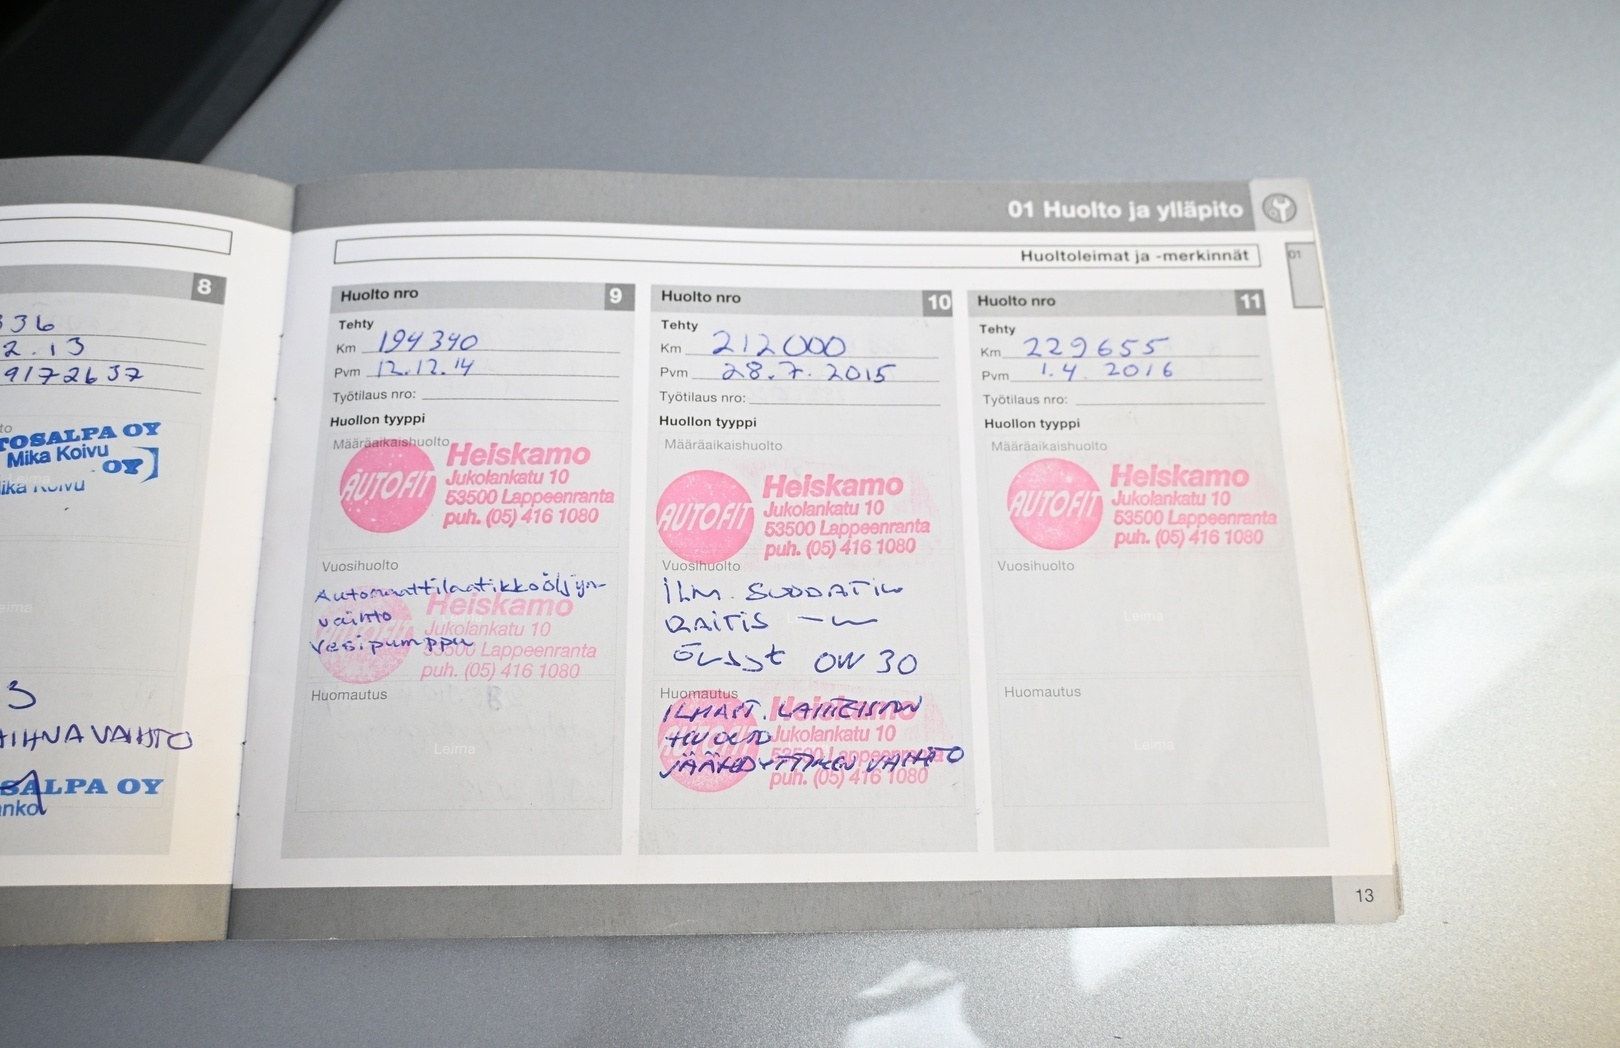 01 Huolto ja ylläpito
Huoltoleimat ja -merkinnät
01
8
336
2.13
9172637
to
TOSALPA OY
Mika Koivu
OY
ika Koivu
eima
3
HIHNAVAIHTO
SALPA OY
anko
Huolto nro 9
Tehty
Km 194340
Pvm 12.12.14
Työtilaus nro:
Huollon tyyppi
Määräaikaishuolto
AUTOFIT
Heiskamo
Jukolankatu 10
53500 Lappeenranta
puh. (05) 416 1080
Vuosihuolto
Automaattilaatikkoöljyn-
vaihto
Vesipumppu
Heiskamo
Jukolankatu 10
53500 Lappeenranta
puh. (05) 416 1080
Huomautus
Leima
Huolto nro 10
Tehty
Km 212000
Pvm 28.7.2015
Työtilaus nro:
Huollon tyyppi
Määräaikaishuolto
AUTOFIT
Heiskamo
Jukolankatu 10
53500 Lappeenranta
puh. (05) 416 1080
Vuosihuolto
ILM. SUODATIN
RAITIS
ÖLJYT OW 30
Huomautus
ILMAST. LAITTEISTON
HUOLTO
JÄÄHDYTTIMEN VAIHTO
Heiskamo
Jukolankatu 10
53500 Lappeenranta
puh. (05) 416 1080
Huolto nro 11
Tehty
Km 229655
Pvm 1.4 2016
Työtilaus nro:
Huollon tyyppi
Määräaikaishuolto
AUTOFIT
Heiskamo
Jukolankatu 10
53500 Lappeenranta
puh. (05) 416 1080
Vuosihuolto
Leima
Huomautus
Leima
13